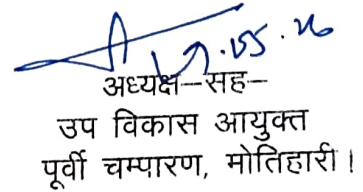 अध्यक्ष–सह–
उप विकास आयुक्त
पूर्वी चम्पारण, मोतिहारी।